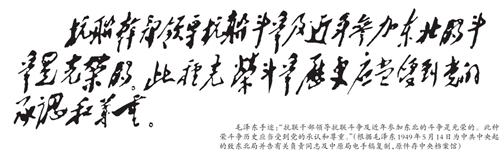 抗联干部领导抗联斗争及近年参加东北的斗
争是光荣的。此种光荣斗争历史应当受到党的
承认和尊重。
毛泽东手迹:“抗联干部领导抗联斗争及近年参加东北的斗争是光荣的。此种
荣斗争历史应当受到党的承认和尊重。”(根据毛泽东1949年5月14日为中共中央起
的致东北局并告有关负责同志及中原局电手稿复制,原件存中央档案馆)